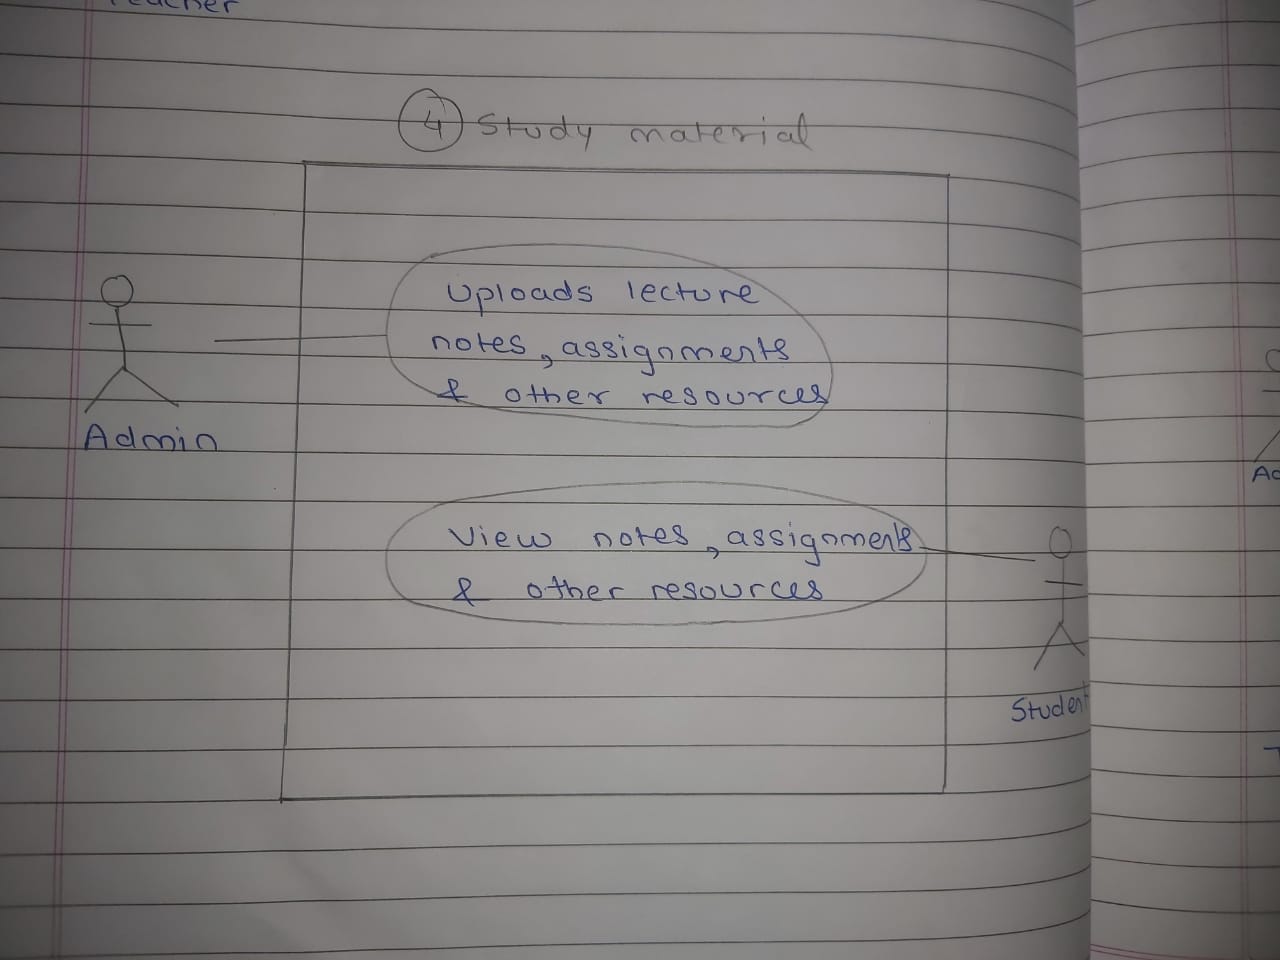 Teacher
4 Study material
Uploads lecture
notes, assignments
& other resources
Admin
View notes, assignments
& other resources
Student